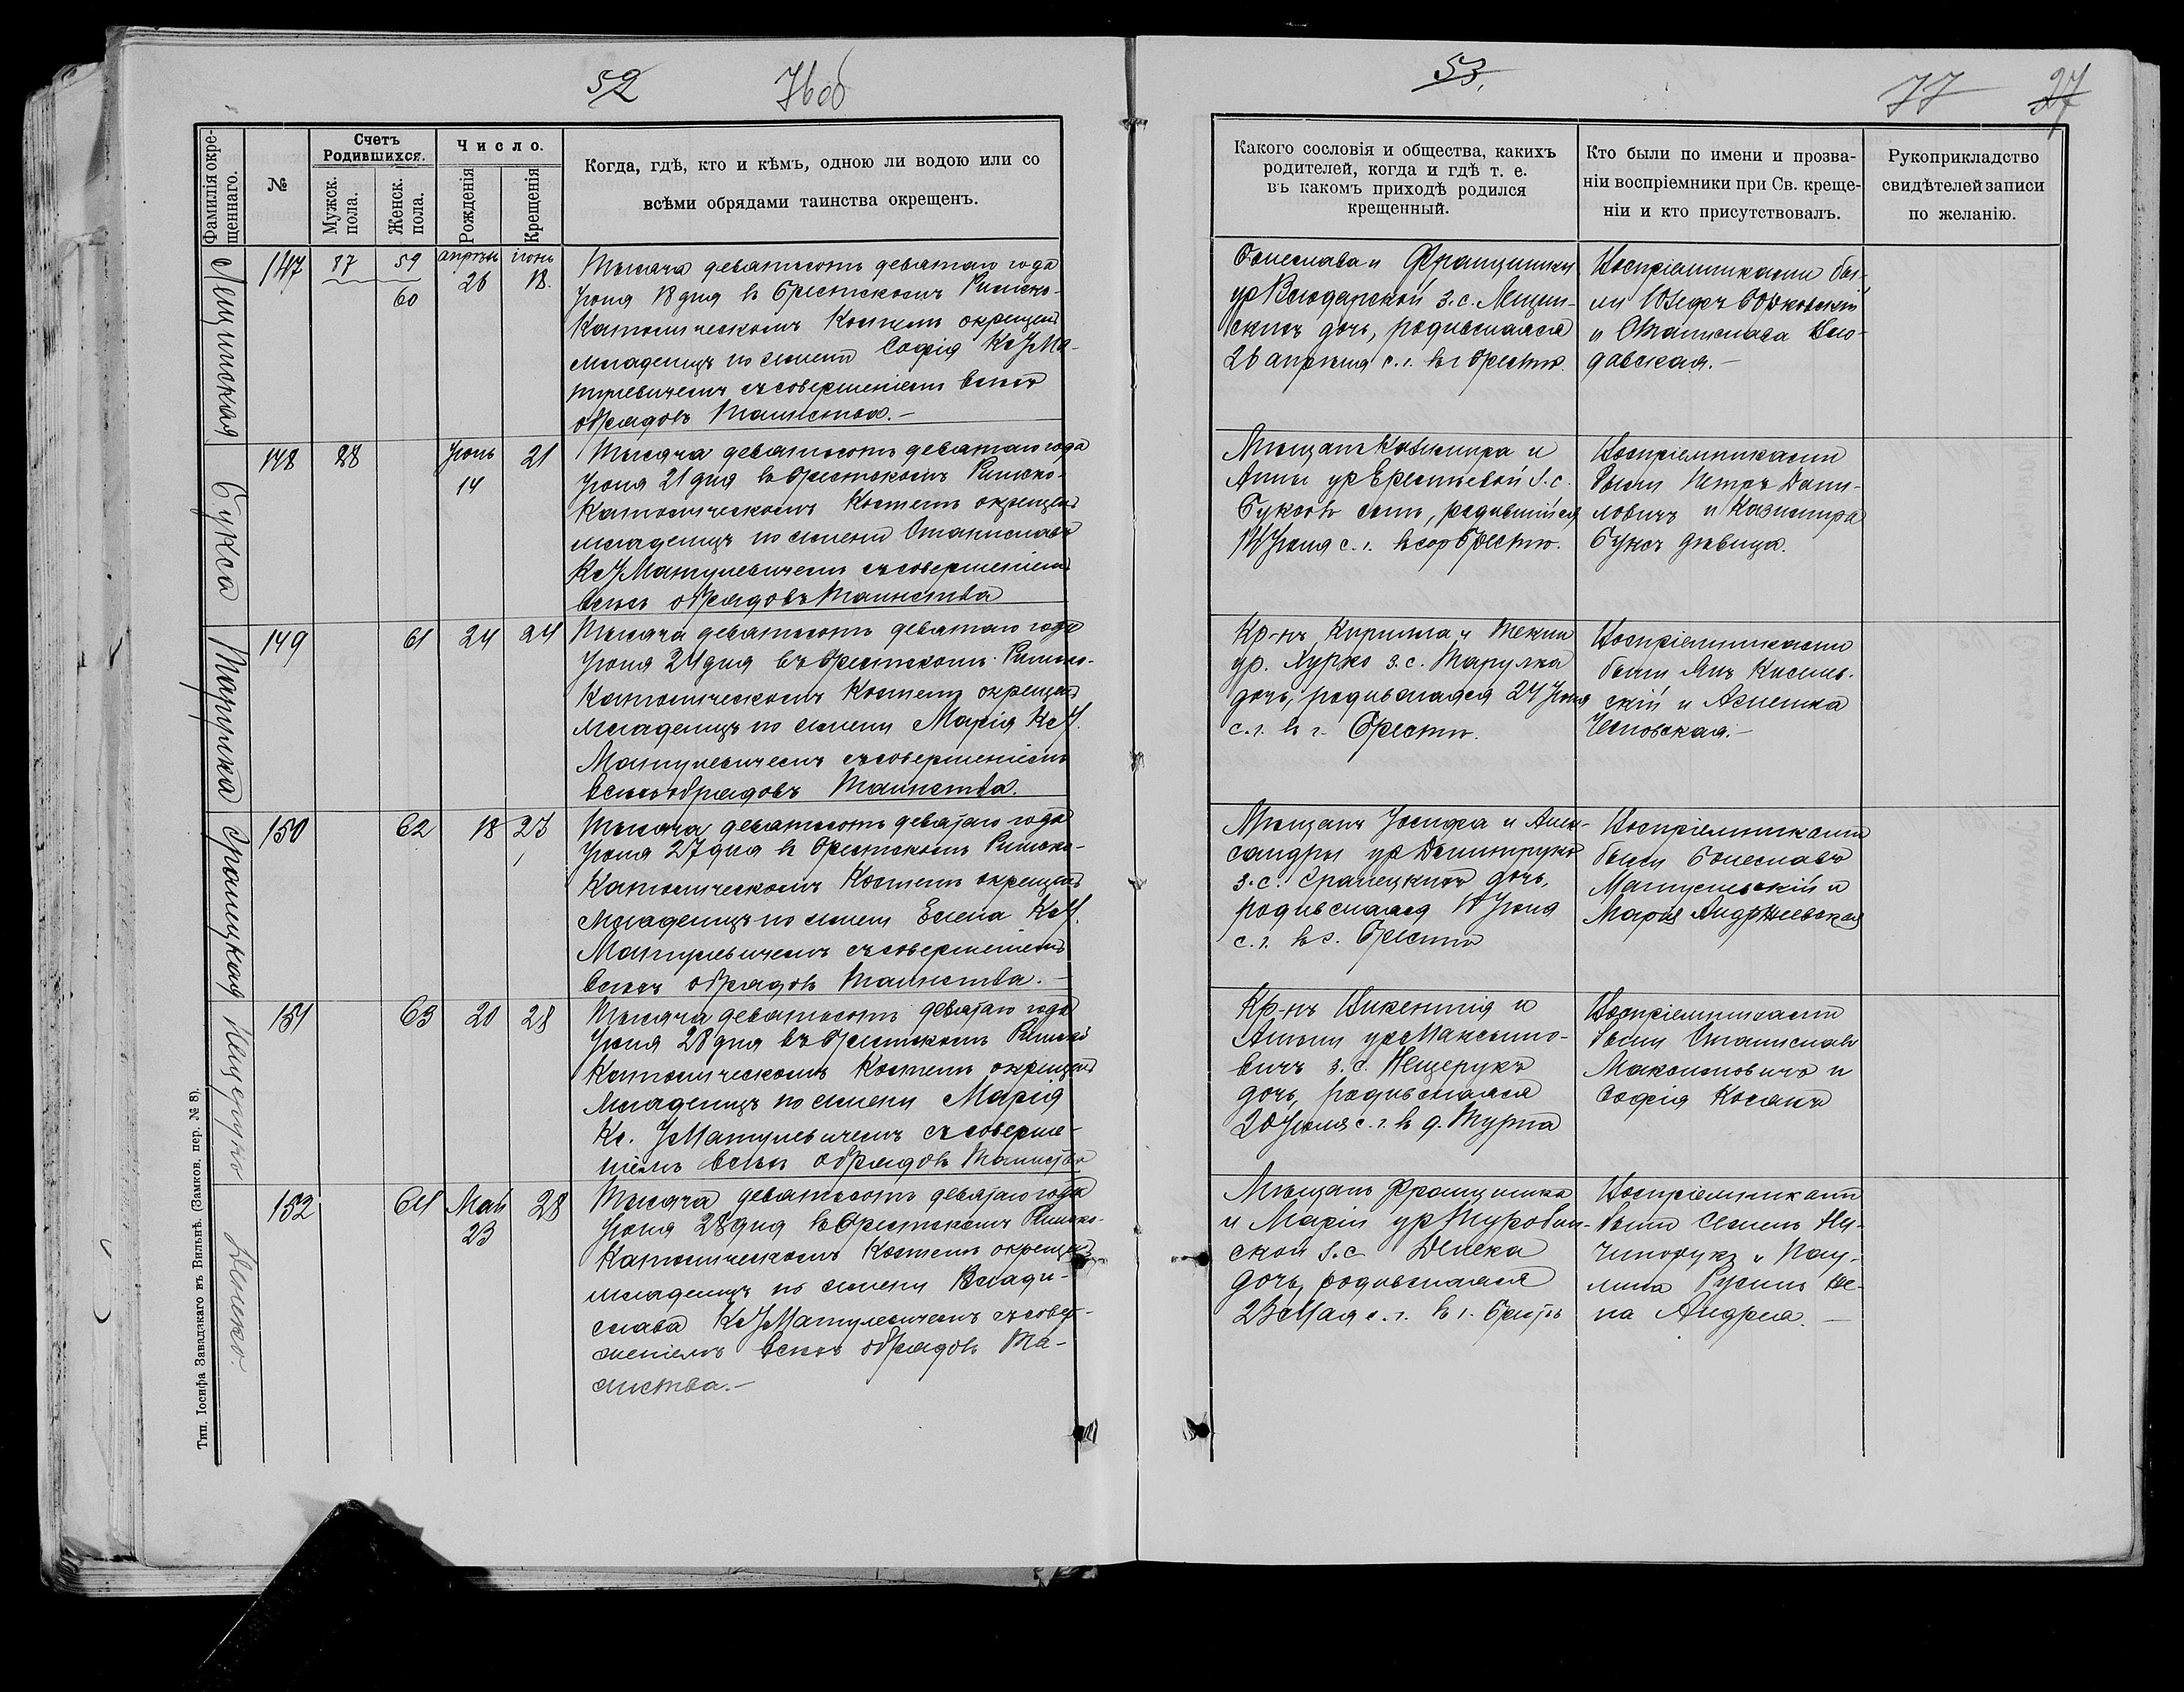 52
76об
Фамилія окре-
щеннаго.
№
Счетъ
Родившихся.
Мужск.
пола.
Женск.
пола.
Число.
Рожденія
Крещенія
Когда, гдѣ, кто и кѣмъ, одною ли водою или со
всѣми обрядами таинства окрещенъ.
147
87
59
60
апрѣль
26
іюнь
18.
Тысяча девятьсотъ девятаго года
Іюня 18 дня въ Брестскомъ Римско-
Католическомъ Костелѣ окрещенъ
младенецъ по имени Софія Кс І Ма-
тулевичемъ съ совершеніемъ всѣхъ
обрядовъ Таинства.—
148
88
Іюнь
14
21
Букса
Тысяча девятьсотъ девятаго года
Іюня 21 дня въ Брестскомъ Римско-
Католическомъ Костелѣ окрещенъ
младенецъ по имени Станиславъ
Кс І Матулевичемъ съ совершеніемъ
всѣхъ обрядовъ Таинства
149
61
24
24
Тарулка
Тысяча девятьсотъ девятаго года
Іюня 24 дня въ Брестскомъ Римско-
Католическомъ Костелѣ окрещенъ
младенецъ по имени Марія Кс І.
Матулевичемъ съ совершеніемъ
всѣхъ обрядовъ Таинства.
150
62
18
27
Тысяча девятьсотъ девятаго года
Іюня 27 дня въ Брестскомъ Римско-
Католическомъ Костелѣ окрещенъ
младенецъ по имени Елена Кс І.
Матулевичемъ съ совершеніемъ
всѣхъ обрядовъ Таинства.—
151
63
20
28
Тысяча девятьсотъ девятаго года
Іюня 28 дня въ Брестскомъ Римско
Католическомъ Костелѣ окрещенъ
младенецъ по имени Марія
Кс. І Матулевичемъ съ соверше-
ніемъ всѣхъ обрядовъ Таинства
152
64
Май
23
28
Тысяча девятьсотъ девятаго года
Іюня 28 дня въ Брестскомъ Римско-
Католическомъ Костелѣ окрещенъ
младенецъ по имени Влади-
слава Кс І Матулевичемъ съ совер-
шеніемъ всѣхъ обрядовъ Та-
инства.—
Тип. Іосифа Завадзкаго въ Вильнѣ. (Замков. пер. № 8).
53.
77
27
Какого сословія и общества, какихъ
родителей, когда и гдѣ т. е.
въ какомъ приходѣ родился
крещенный.
Кто были по имени и прозва-
ніи воспріемники при Св. креще-
ніи и кто присутствовалъ.
Рукоприкладство
свидѣтелей записи
по желанію.
Болеслава и Францишки
ур з. с. Лещин-
скихъ дочь, родившаяся
26 апрѣля с. г. въ г Брестѣ.
Воспріемниками бы-
ли Юзефъ
и Станислава Вло-
давская.—
Мѣщанъ Казимира и
Анны ур з. с.
Буксовъ сынъ, родившійся
14 Іюня с. г. въ гор Брестѣ.
Воспріемниками
были Петръ Дани-
ловичъ и Казимира
Букса дѣвица.
Кр-нъ Кирилла и Теклии
ур. з. с. Тарулка
дочь, родившаяся 24 Іюня
с. г. въ г. Брестѣ.
Воспріемниками
были Янъ Кисель-
скій и Агнешка
Мѣщанъ Іосифа и Алек-
сандры ур Дмитрукъ
з. с. дочь,
родившаяся 18 Іюня
с. г. въ г. Брестѣ
Воспріемниками
были Болеславъ
и
Марія Анджеевская
Кр-нъ Викентія и
Анны ур Максимо-
вичъ з. с. Нещерукъ
дочь, родившаяся
20 Іюня с. г. въ д. Турна
Воспріемниками
были Станиславъ
Максимовичъ и
Софія Косакъ
Мѣщанъ Францишка
и Маріи ур Туробин-
ской з. с. Денека
дочь, родившаяся
23 Мая с. г. въ г. Брестѣ
Воспріемниками
были Семенъ Ни-
чипорукъ и Пау-
лина Русинъ же-
на Андрея.—